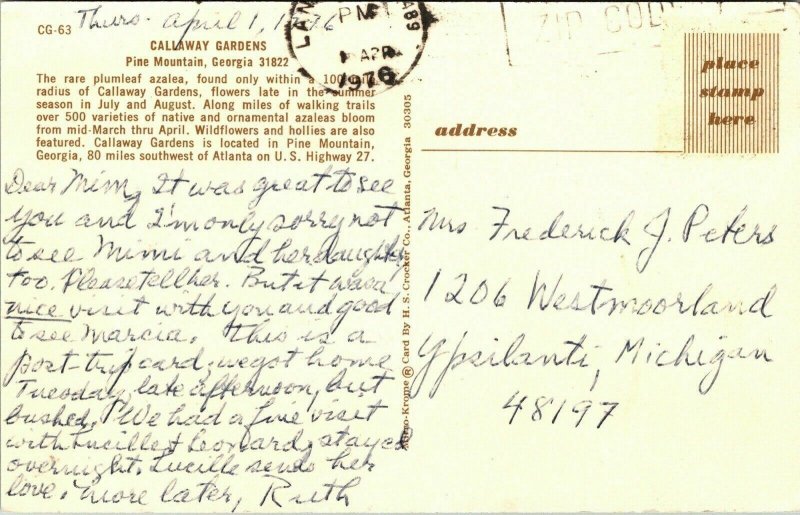 Thurs. April 1, 1976
LAN
PM
1 APR
1976
489
ZIP COD
CG-63
CALLAWAY GARDENS
Pine Mountain, Georgia 31822
The rare plumleaf azalea, found only within a 100 mile
radius of Callaway Gardens, flowers late in the summer
season in July and August. Along miles of walking trails
over 500 varieties of native and ornamental azaleas bloom
from mid-March thru April. Wildflowers and hollies are also
featured. Callaway Gardens is located in Pine Mountain,
Georgia, 80 miles southwest of Atlanta on U.S. Highway 27.
Dear Mim, It was great to see
you and I'm only sorry not
to see Mimi and her daughter
too. Please tell her. But it was a
nice visit with you and good
to see Marcia. This is a
post-trip card; we got home
Tuesday, late afternoon, but
bushed. We had a fine visit
with Lucille & Leonard, stayed
overnight. Lucille sends her
love. More later, Ruth
-Krome ® Card By H. S. Crocker Co., Atlanta, Georgia 30305
place
stamp
here
address
Mrs Frederick J. Peters
1206 Westmoorland
Ypsilanti, Michigan
48197